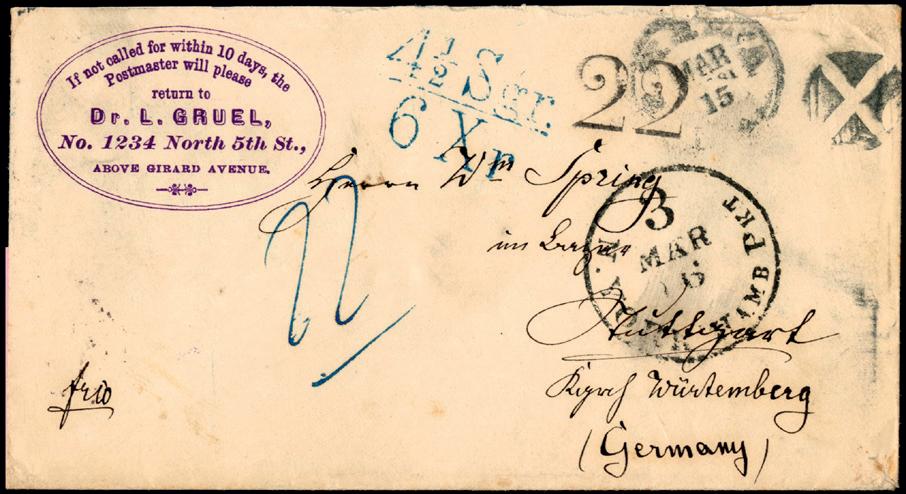 If not called for within 10 days, the
Postmaster will please
return to
Dr. L. GRUEL,
No. 1234 North 5th St.,
ABOVE GIRARD AVENUE.
4½ Sgr.
6 Xr
22
MAR
15
Herrn Wm Spring
im Bazar
Stuttgart
Kgrch Würtemberg
(Germany)
22
3
MAR
N. YORK HAMB PKT